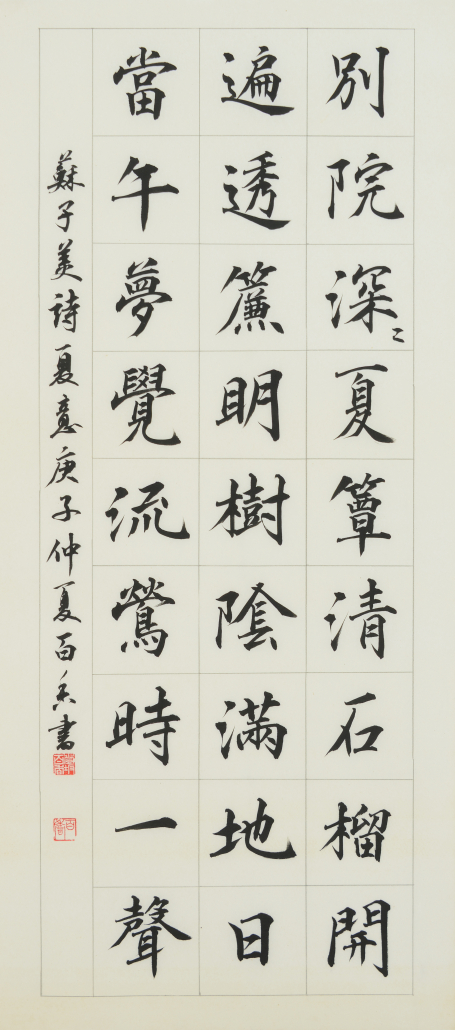 別院深〻夏簟清石榴開
遍透簾明樹陰滿地日
當午夢覺流鶯時一聲
蘇子美詩夏意庚子仲夏百香書